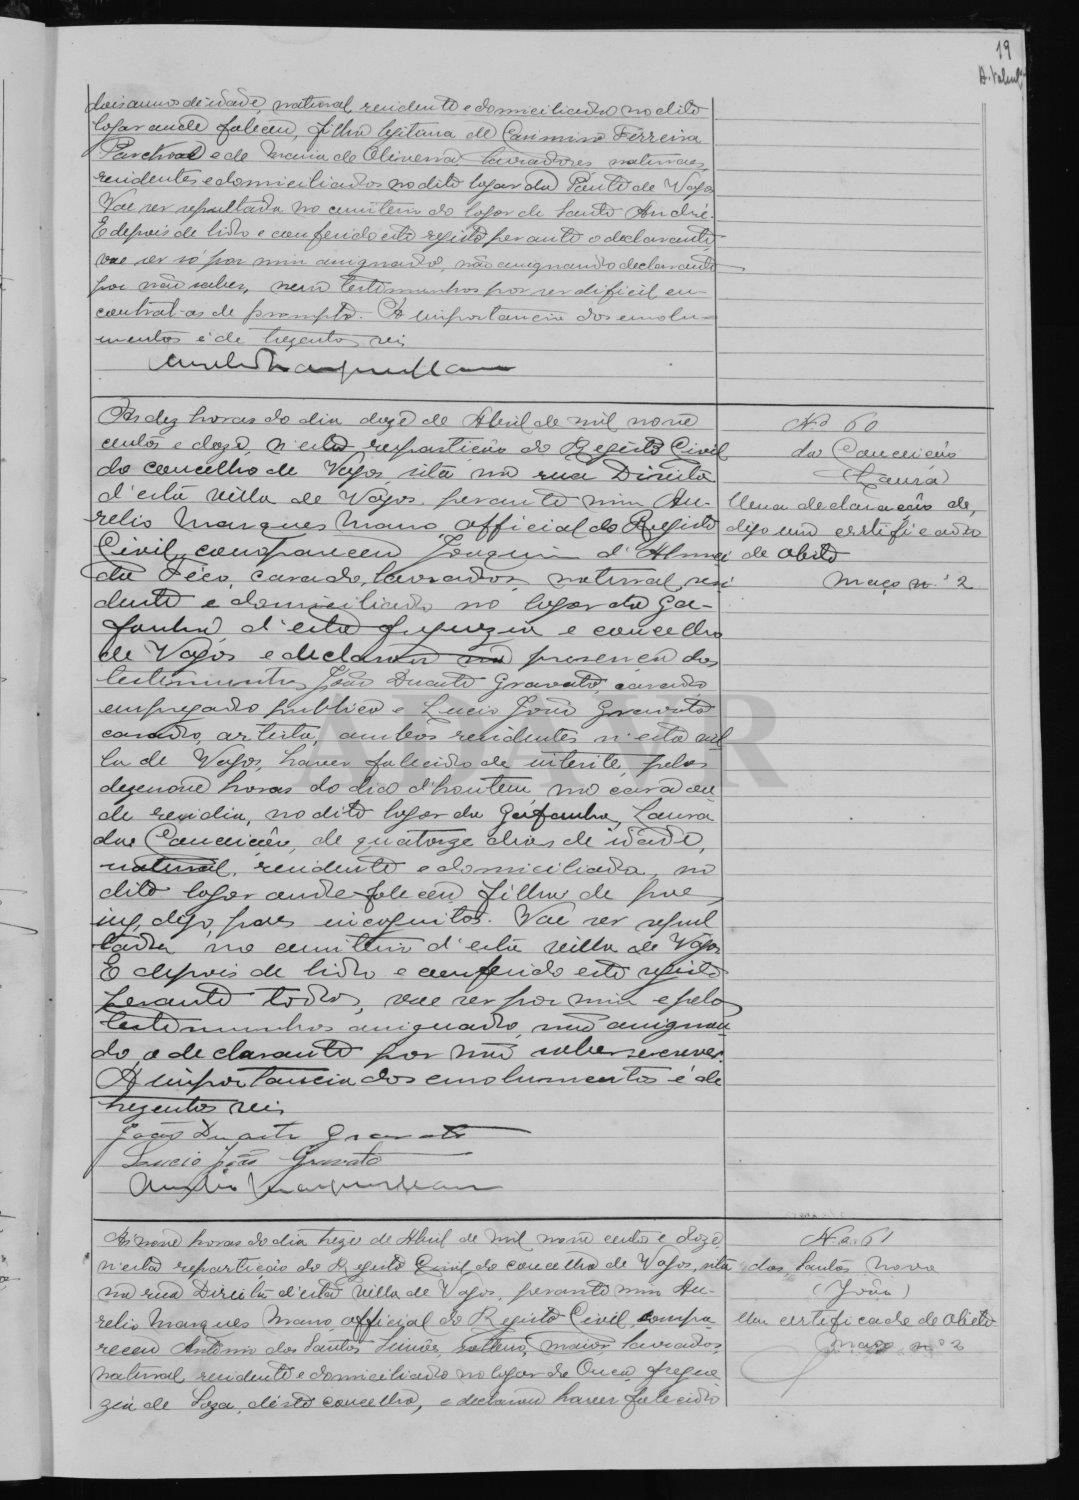 19
dois annos de idade, natural, residente e domiciliado no dito
logar onde faleceu, filha legitima de Casimiro Ferreira
e de Maria de Oliveira lavradores naturaes,
residentes e domiciliados no dito logar da Ponte de Vagos
Vae ser sepultada no cemiterio do logar de Santo André.
E depois de lido e conferido este registo perante o declarante,
vae ser só por mim assignado, não assignando declarante
por não saber, nem testemunhas por ser dificil en-
contral-as de prompto. A importancia dos emolu-
mentos é de trezentos reis
Ás dez horas do dia doze de Abril de mil nove
centos e doze, n'esta repartição do Registo Civil
do concelho de Vagos, sita na rua Direita
d'esta villa de Vagos perante mim Au-
relio Marques Mano official do Registo
Civil, compareceu Joaquim d'Almei
da Féco, casado, lavrador, natural, resi
dente e domiciliado no logar da Ga-
fanha, d'esta freguezia e concelho
de Vagos e declarou na presença das
testemunhas João Duarte Gravato, casado,
empregado publico e Lucio João Gravato
casado, artista, ambos residentes n'esta vil
la de Vagos, haver falecido de interite, pelas
dezenove horas do dia d'hontem na casa on
de residia, no dito logar da Gafanha, Laura
da Conceição, de quatorze dias de idade,
natural, residente e domiciliada, no
dito logar onde faleceu filha de pae
inc, digo, paes incognitos. Vae ser sepul
tada no cemiterio d'esta villa de Vagos
E depois de lido e conferido este registo
perante todos, vae ser por mim e pelas
testemunhas assignado, não assignan
do, o declarante por não saber escrever.
A importancia dos emolumentos é de
trezentos reis
João Duarte Gravato
Lucio João Gravato
Aurelio Marques Mano
Nº 60
da Conceição
(Laura)
Uma declaração de,
digo um certificado
de obito
Maço n.º 2
Ás nove horas do dia treze de Abril de mil nove centos e doze
n'esta repartição do Registo Civil do concelho de Vagos, sita
na rua Direita d'esta villa de Vagos, perante mim Au-
relio Marques Mano, official do Registo Civil, compa-
receu Antonio dos Santos solteiro, maior, lavrador,
natural, residente e domiciliado no logar de Ouca, fregue
zia de Soza, deste concelho, e declarou haver falecido
Nº 61
dos Santos Novo
(João)
Um certificado de obito
Maço nº 2
ADAVR